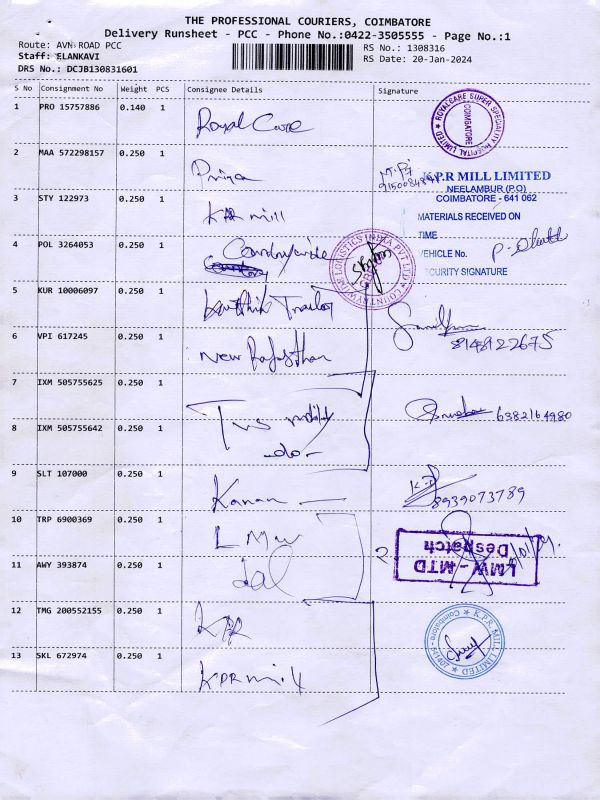 THE PROFESSIONAL COURIERS, COIMBATORE
Delivery Runsheet - PCC - Phone No.:0422-3505555 - Page No.:1
Route: AVN ROAD PCC
RS No.: 1308316
Staff: ELANKAVI
RS Date: 20-Jan-2024
DRS No.: DCJB130831601
S No Consignment No Weight PCS Consignee Details Signature
1 PRO 15757886 0.140 1 Royal Care
ROYALCARE SUPER SPECIALITY HOSPITAL LIMITED
COIMBATORE
2 MAA 572298157 0.250 1 Priya
K.P.R MILL LIMITED
NEELAMBUR (P.O)
COIMBATORE - 641 062
3 STY 122973 0.250 1 KPR mill
MATERIALS RECEIVED ON
TIME
4 POL 3264053 0.250 1 Countrywide
COUNTRYWIDE LOGISTICS INDIA PVT LTD
VEHICLE No.
SECURITY SIGNATURE
5 KUR 10006097 0.250 1 Karthik
6 VPI 617245 0.250 1 New Rajasthan
8148122675
7 IXM 505755625 0.250 1 TVS
6382164980
8 IXM 505755642 0.250 1 -do-
9 SLT 107000 0.250 1 Kanan
8939073789
10 TRP 6900369 0.250 1 LMW
2
LMW - MTD
Despatch
11 AWY 393874 0.250 1
12 TMG 200552155 0.250 1 KPR
K.P.R. MILL LIMITED
Coimbatore - 641407
13 SKL 672974 0.250 1 KPR mill